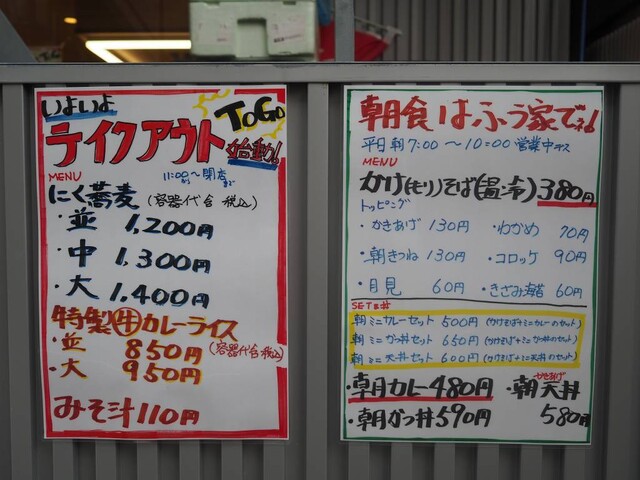 いよいよ
テイクアウト
ToGo
始動!
MENU
11:00より〜閉店まで
にく蕎麦(容器代含 税込)
・並 1,200円
・中 1,300円
・大 1,400円
特製牛カレーライス
・並 850円
(容器代含 税込)
・大 950円
みそ汁 110円
朝食はふう家でネ!
平日朝7:00〜10:00営業中デス
MENU
かけ(もり)そば(温・冷)380円
トッピング
・かきあげ 130円
・わかめ 70円
・朝きつね 130円
・コロッケ 90円
・月見 60円
・きざみ海苔 60円
SET&丼
朝ミニカレーセット 500円(かけそば+ミニカレーのセット)
朝ミニかつ丼セット 650円(かけそば+ミニかつ丼のセット)
朝ミニ天丼セット 600円(かけそば+ミニ天丼のセット)
・朝カレー480円
かきあげ
・朝天丼
580円
・朝かつ丼590円